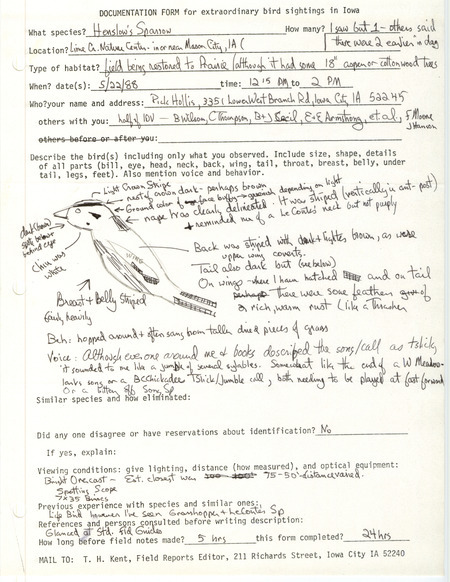 DOCUMENTATION FORM for extraordinary bird sightings in Iowa
What species? Henslow's Sparrow How many? I saw but 1 - others said
there were 2 earlier in day
Location? Lime Cr. Nature Center - in or near Mason City, IA
Type of habitat? field being restored to Prairie (although it had some 18" aspen or cottonwood trees
When? date(s): 5/22/88 time: 12:15 PM to 2 PM
Who? your name and address: Rick Hollis, 3351 Lower West Branch Rd, Iowa City IA 52245
others with you: half of IOU - B Wilson, C Thompson, B+J Cecil, E+E Armstrong, et al, F Moore
J Hanson
others before or after you:
Describe the bird(s) including only what you observed. Include size, shape, details
of all parts (bill, eye, head, neck, back, wing, tail, throat, breast, belly, under
tail, legs, feet). Also mention voice and behavior.
Light Crown Stripe
rest of crown dark - perhaps brown
Ground color of face buffy - greenish depending on light
nape was clearly delineated. It was striped (vertically ie ant-post)
reminded me of a Le Contes neck but not purply
dark brown
spots below
behind eye
Chin was
white
Back was striped with dark + lighter brown, as were
upper wing coverts.
Tail also dark but (see below)
On wings - where I have hatched and on tail
there were some feathers given of
a rich, warm rust (like a Thrasher
Breast + belly striped
fairly heavily
Beh: hopped around + often sang from taller dried pieces of grass
Voice: Although everyone around me + books described the song/call as tslick,
it sounded to me like a jumble of several syllables. Somewhat like the end of a W Meadow-
larks song or a BCChickadee Tslick/Jumble call, both needing to be played at fast forward
Or a bitten off Song Sp
Similar species and how eliminated:
Did any one disagree or have reservations about identification? No
If yes, explain:
Viewing conditions: give lighting, distance (how measured), and optical equipment:
Bright Overcast - Est. closest was 75-50' distance varied.
Spotting Scope
7x35 Binocs
Previous experience with species and similar ones:
Life Bird however I've seen Grasshopper + LeContes Sp
References and persons consulted before writing description:
Glanced at Std. Fld Guides
How long before field notes made? 5 hrs this form completed? 24 hrs
MAIL TO: T. H. Kent, Field Reports Editor, 211 Richards Street, Iowa City IA 52240